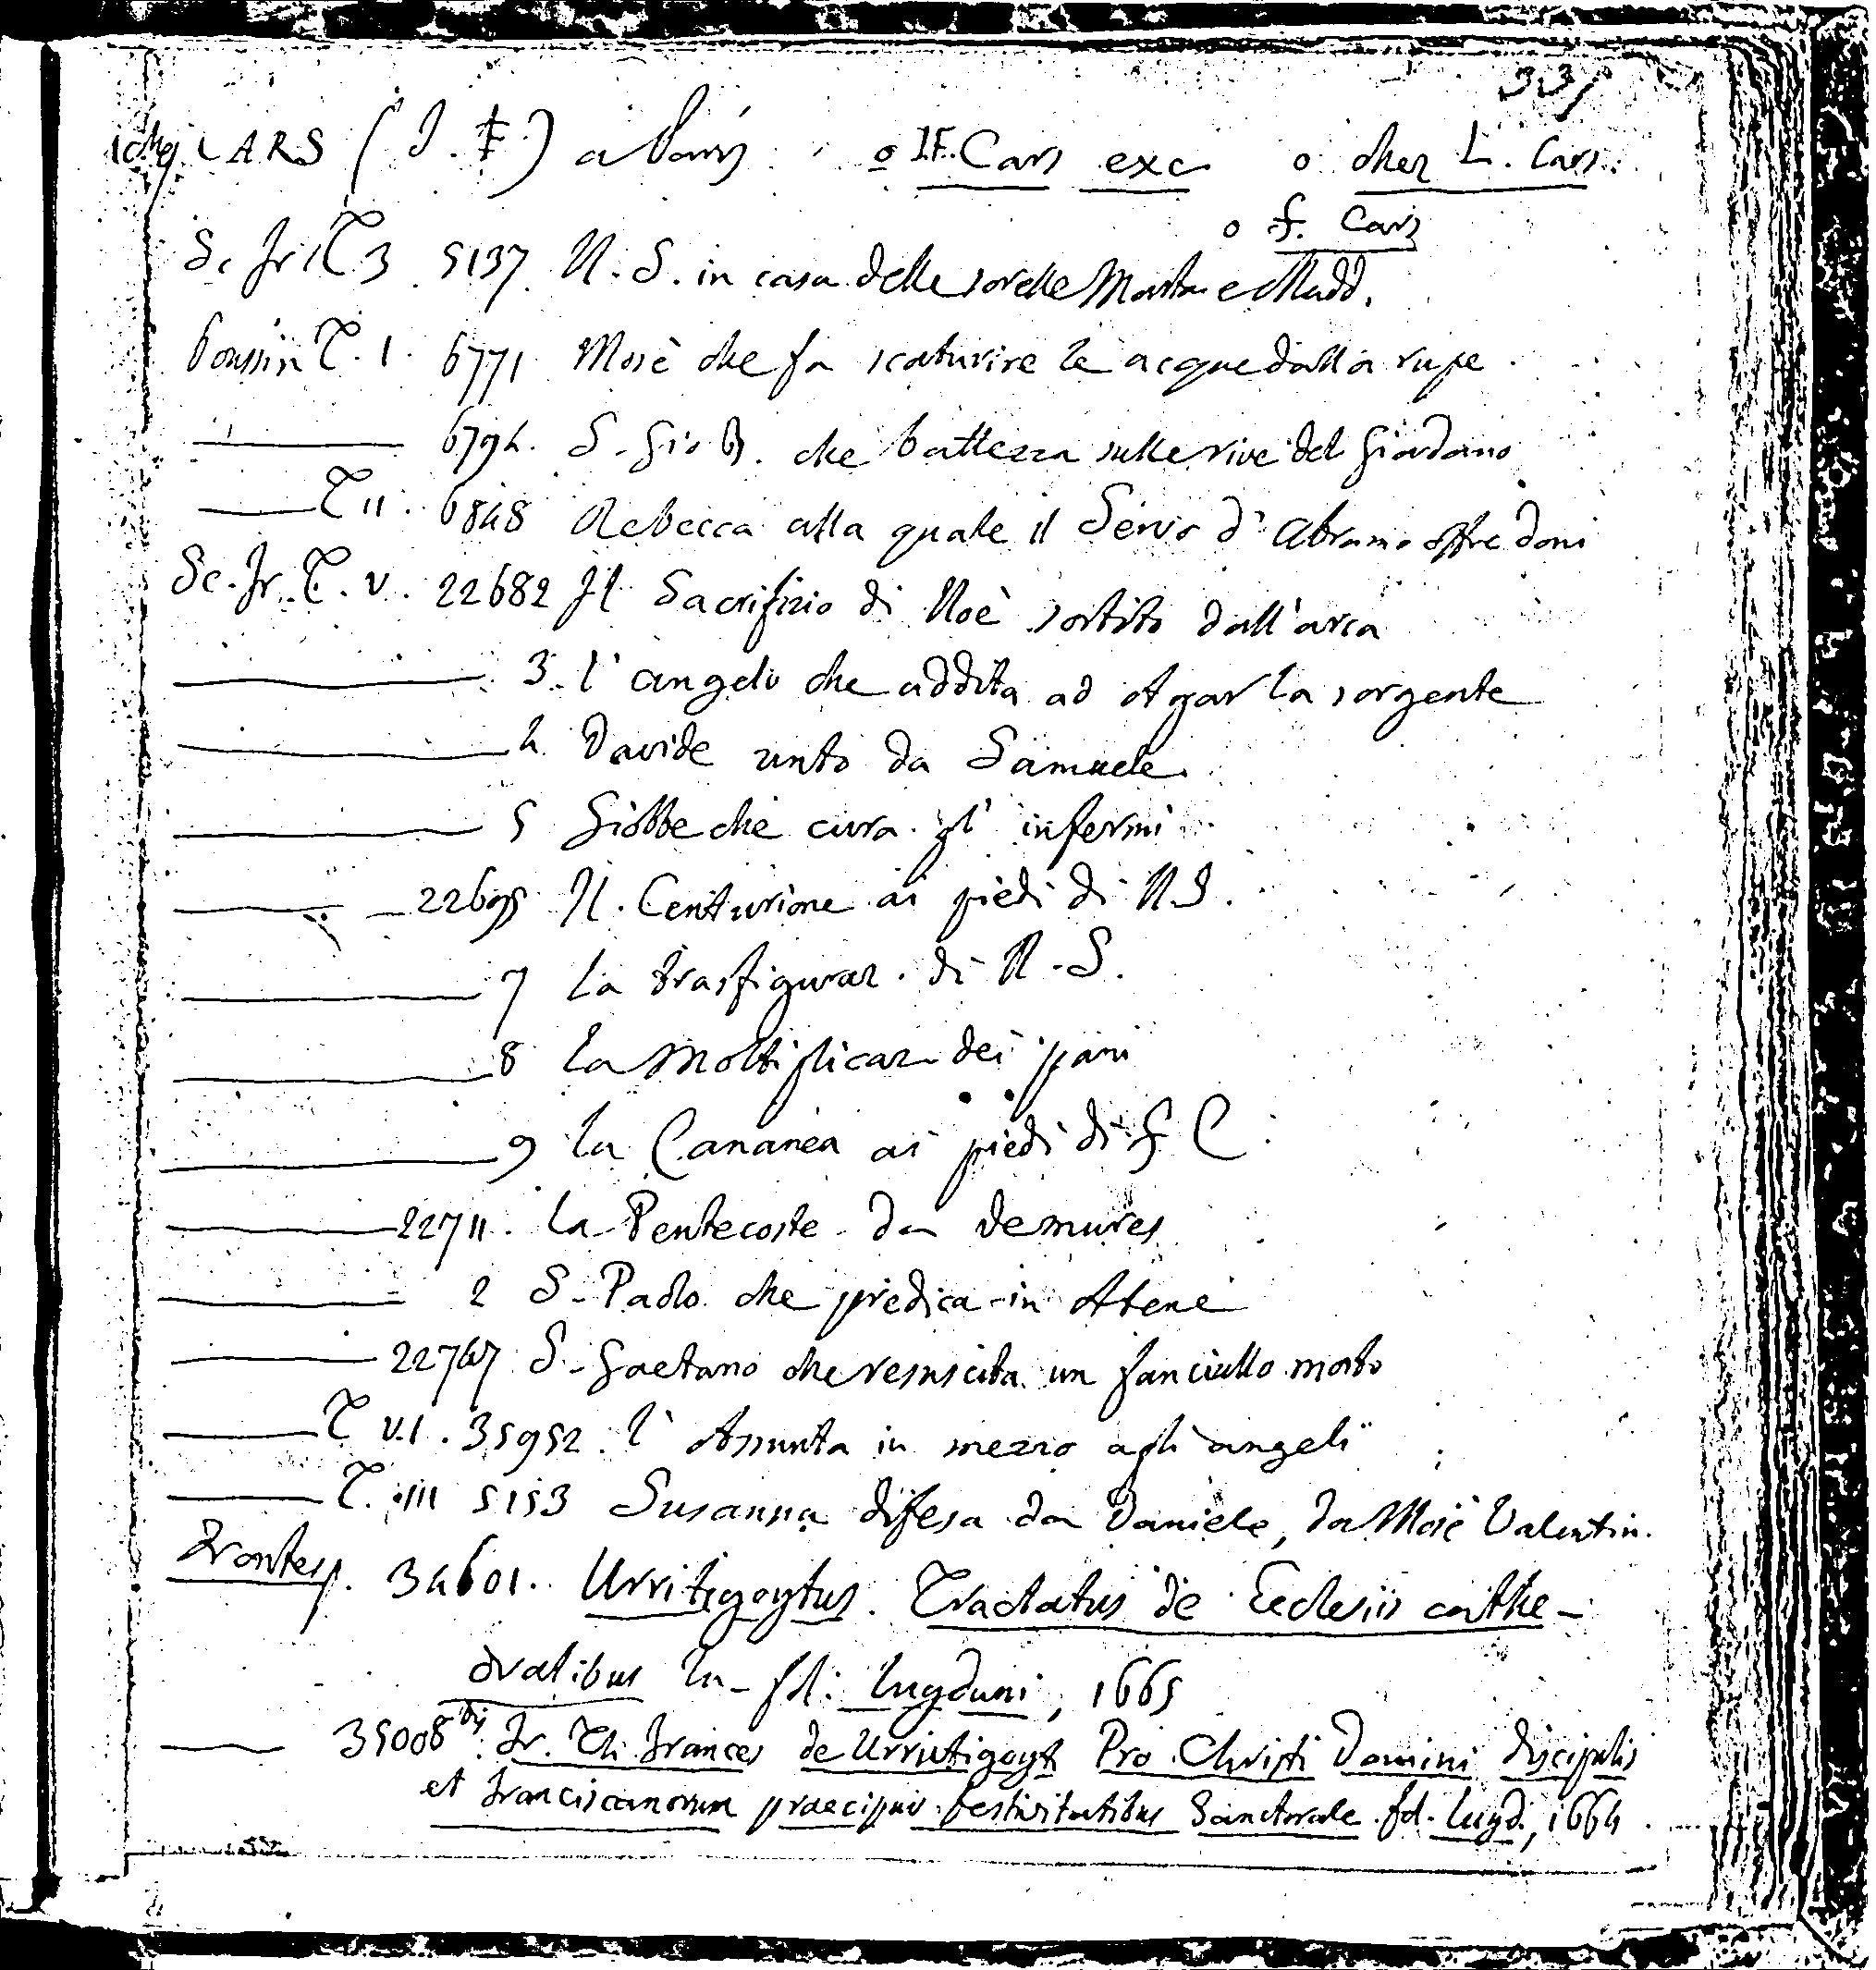 33
CARS (J. F.) a Paris o J.F. Cars exc o chez L. Cars.
o f. Cars
Sc. fr. T. 3 5137. N. S. in casa delle sorelle Marta e Madd.
Poussin T. 1. 6771 Mosè che fa scaturire le acque dalla rupe.
6794. S. Gio B. che battezza sulle rive del Giordano
T II. 6848 Rebecca alla quale il Servo d'Abramo offre doni
Sc. fr. T. V. 22682 Il Sacrifizio di Noè sortito dall'arca
3. l'angelo che addita ad Agar la sorgente
4. Davide unto da Samuele.
5 Giobbe che cura gl'infermi
22695 Il Centurione ai piedi di N.S.
7 La trasfiguraz. di N. S.
8 La Moltiplicaz dei pani
9 La Cananea ai piedi di G C
22711. La Pentecoste da Demures
2 S. Paolo che predica in Atene
22747 S. Gaetano che resuscita un fanciullo morto
T VI. 35952. l'Assunta in mezzo agli angeli
T. III 5153 Susanna difesa da Daniele, da Mosè Valentin.
Frontesp. 34601. Urritigoytus. Tractatus de Ecclesiis cathe-
dralibus In-fol: Lugduni, 1665
35008 bis. Fr. Th. Frances de Urrutigoyt Pro Christi Domini discipulis
et Franciscanorum praecipuis festivitatibus Sanctorale. fol. Lugd., 1664.